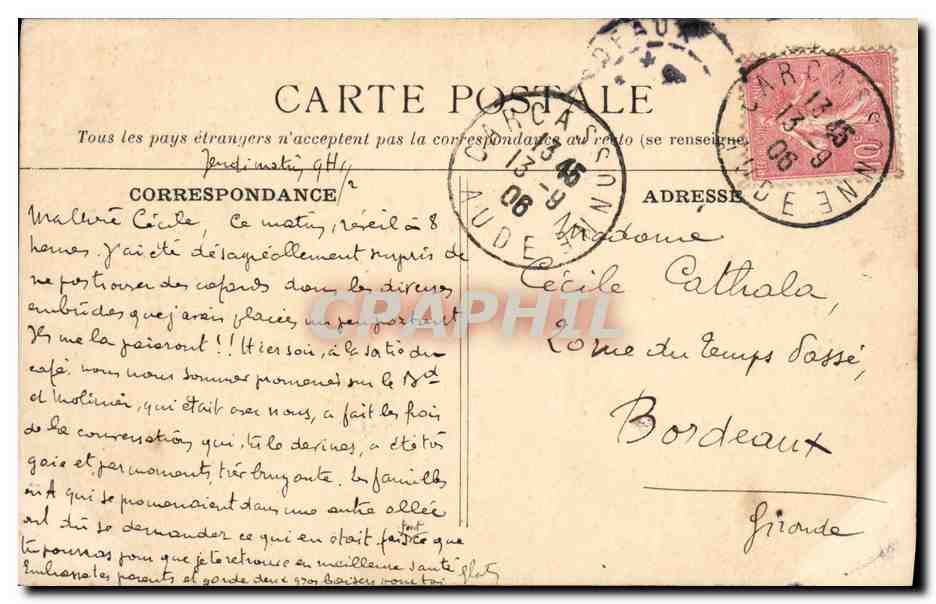 BORDEAUX
CARTE POSTALE
Tous les pays étrangers n'acceptent pas la correspondance au recto (se renseigner
CARCASSONNE
13 45
13 -9
06
AUDE
CARCASSONNE
13 45
13 -9
06
AUDE
10
Jeudi matin 9H 1/2
CORRESPONDANCE
ADRESSE
Ma chère Cécile, Ce matin, réveil à 8
heures. J'ai été désagréablement surpris de
ne pas trouver des cafards dans les diverses
embûches que j'avais placées un peu partout
Ils me la paieront !! Hier soir, à la sortie du
café nous nous sommes promenés sur le Bd
et Molinier, qui était avec nous, a fait les frais
de la conversation qui, tu le devines, a été très
gaie et, par moments, très bruyante. Les familles
en A qui se promenaient dans une autre allée
ont dû se demander ce qui en était
fais tout ce que
tu pourras pour que je te retrouve en meilleure santé
Embrasse les parents et garde deux gros baisers pour toi
Madame
Cécile Cathala,
2 rue du Temps Passé,
Bordeaux
Gironde
CPAPHIL